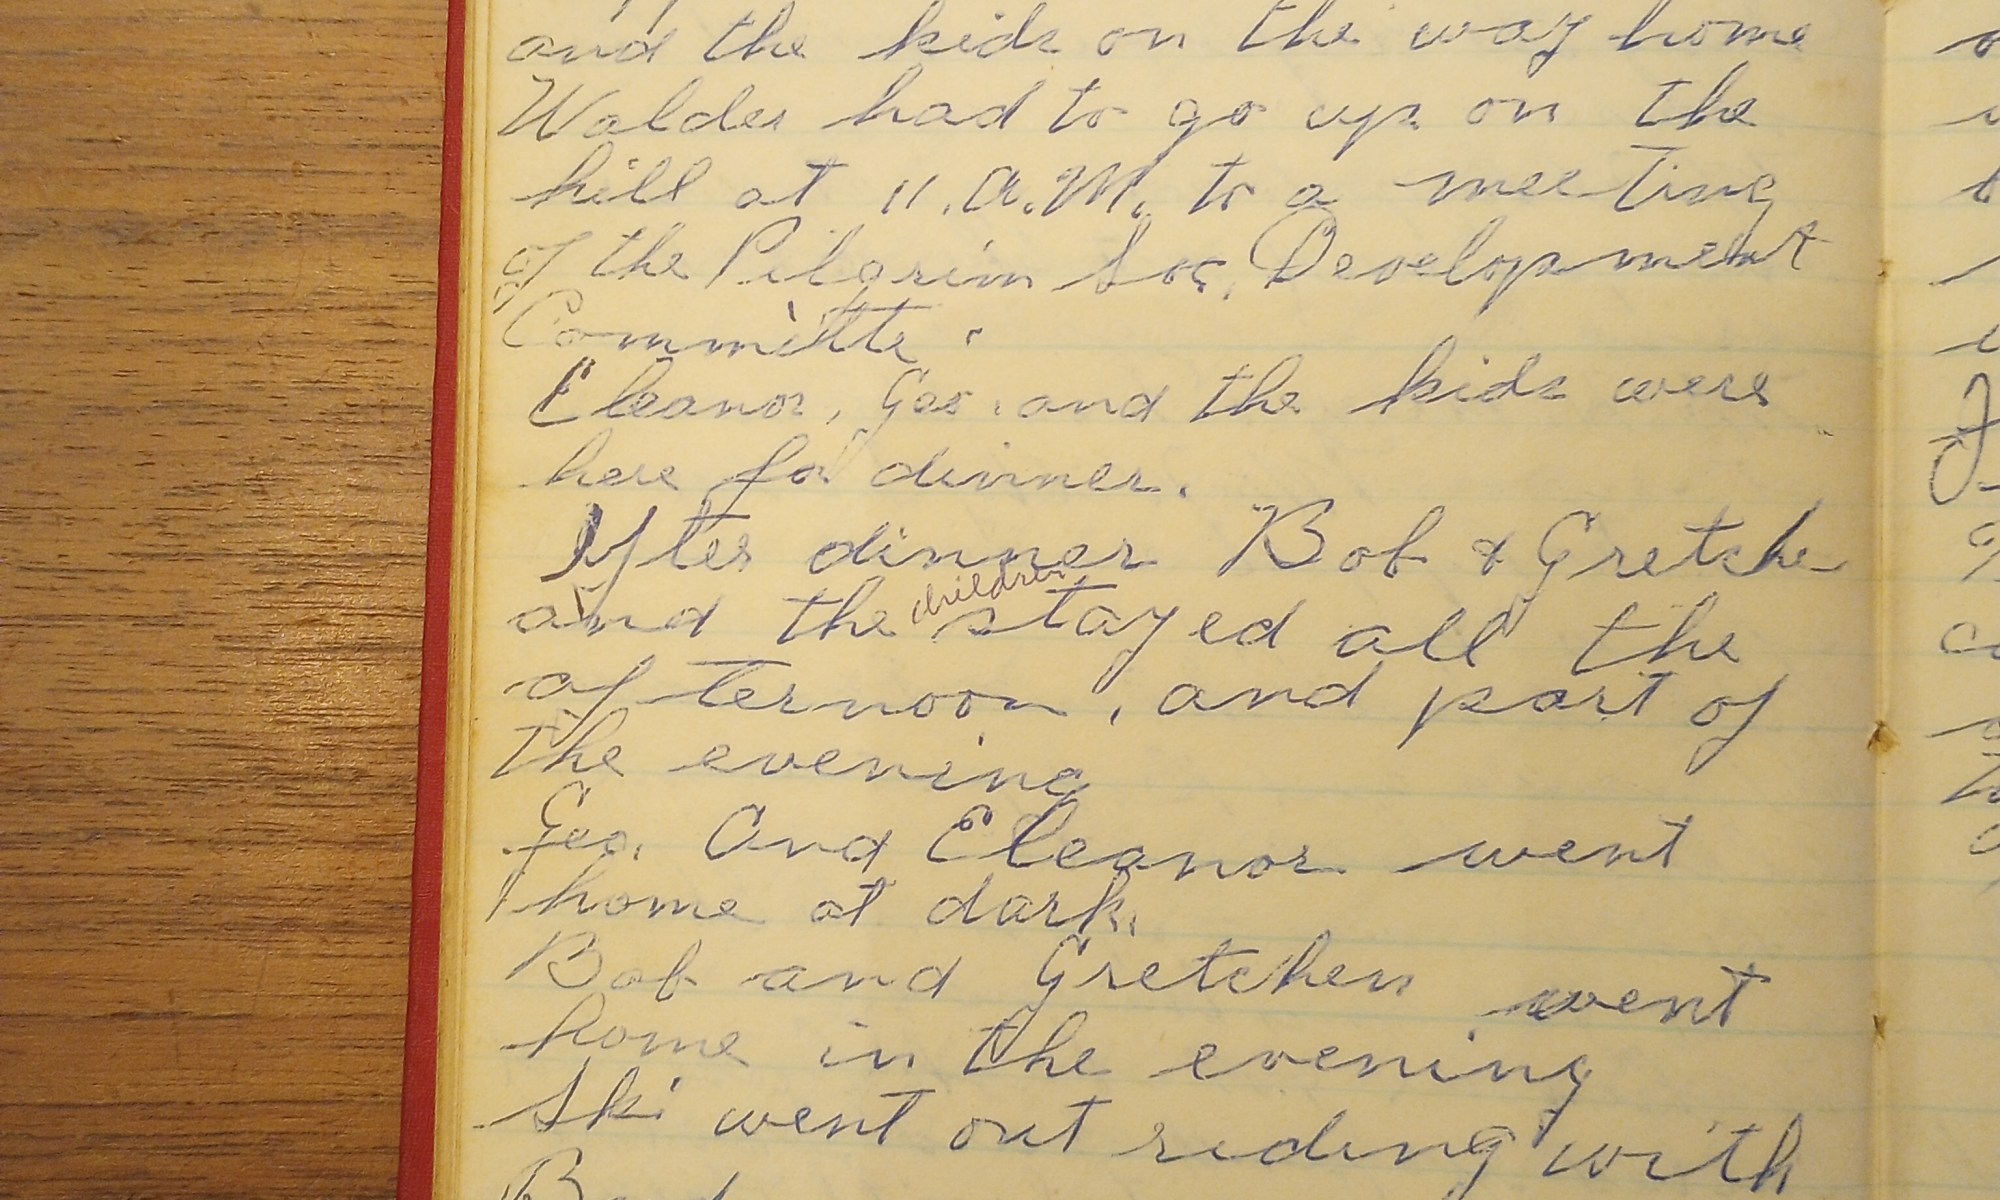 and the kids on the way home
Walder had to go up on the
hill at 11. A.M. to a meeting
of the Pilgrim Soc, Development
Committe.
Eleanor, Geo. and the kids were
here for dinner.
After dinner Bob & Gretche
and the children stayed all the
afternoon, and part of
the evening
Geo. And Eleanor went
home at dark.
Bob and Gretchen went
home in the evening
Ski went out riding with